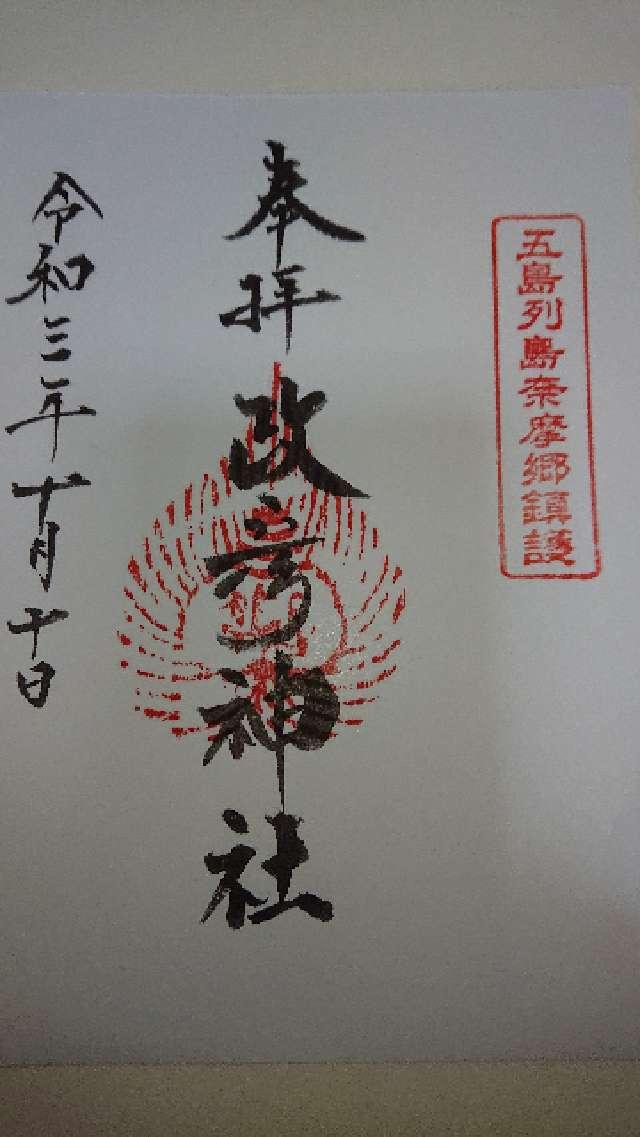 五島列島奈摩郷鎮護
奉拝 政彦神社
令和三年十月十日